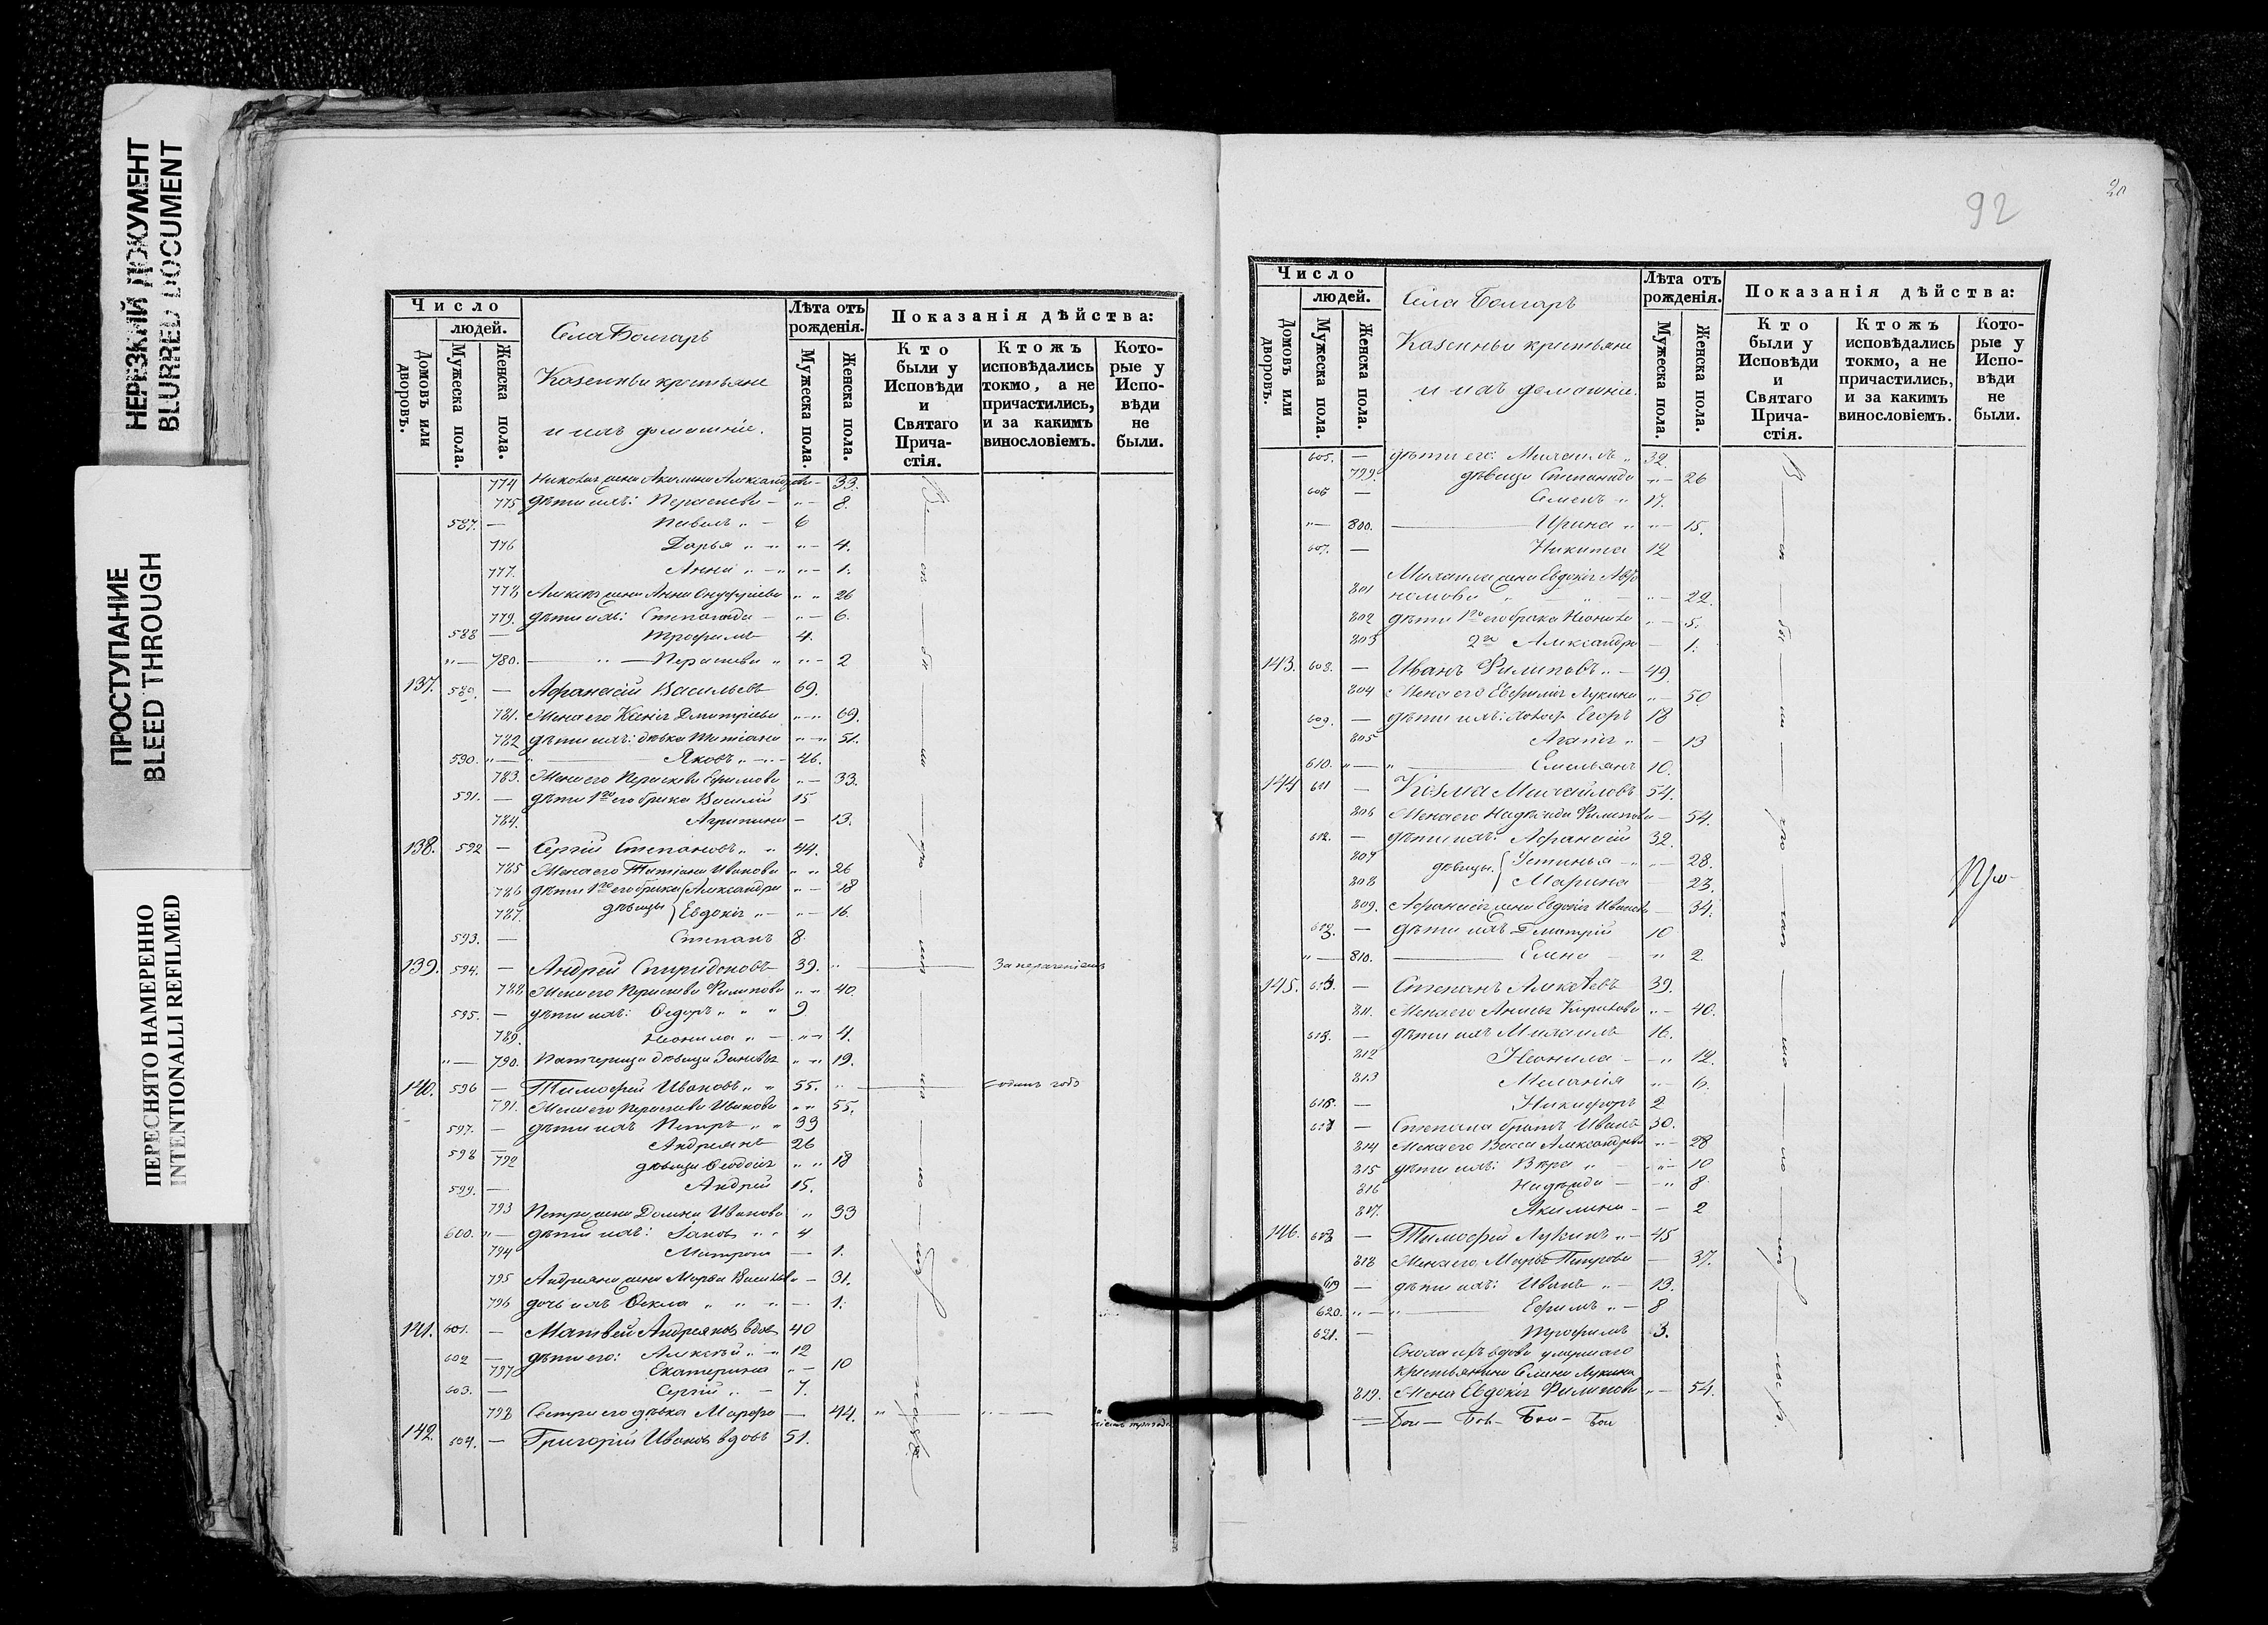 НЕРЕЗКИЙ ДОКУМЕНТ
BLURRED DOCUMENT
ПРОСТУПАНИЕ
BLEED THROUGH
ПЕРЕСНЯТО НАМЕРЕННО
INTENTIONALLI REFILMED
Число
людей.
Домовъ или дворовъ.
Мужеска пола.
Женска пола.
Села Болгаръ
Казенные крестьяне
и ихъ домашніе.
Лѣта отъ рожденія.
Мужеска пола.
Женска пола.
Показанія дѣйства:
Кто были у Исповѣди и Святаго Прича-стія.
Ктожъ исповѣдались токмо, а не причастились, и за какимъ винословіемъ.
Кото-рые у Испо-вѣди не были.
774 жена Акилина Александрова - 33.
775 дѣти ихъ: Параскева - 8.
587. — Павелъ 6
776 Дарья 4.
777. Анна 1.
778 жена Анна Онуфріева 26
779. дѣти ихъ: Степанида 6.
588 — Трофимъ 4.
780. Параскева 2
137. 589. — Афанасій Васильевъ 69.
781. Жена его Ксенія Дмитріева 69.
782 дѣти ихъ: дѣвка Татіана 51.
590. Яковъ 46.
783. Жена его Параскева Ефимова 33.
591. — дѣти 1го его брака Василій 15
784. Агрипина 13.
138. 592 — Сергій Степановъ 44.
785 Жена его Татіана Иванова 26
786 дѣти 1го его брака Александра 18
787. дѣвицы Евдокія 16.
593. — Степанъ 8.
139. 594. — Андрей Спиридоновъ 39.
788 Жена его Параскева Филипова 40.
595. — дѣти ихъ: Ѳедоръ 9
789. Неонила 4.
790. Падчерица дѣвица 19.
140. 596 — Тимофей Ивановъ 55. годъ
791. Жена его Параскева Иванова 55.
597. — дѣти ихъ Петръ 39
598 Андреянъ 26
792 дѣвица Ѳеодосія 18
599. — Андрей 15.
793 Петра жена Домна Иванова 33
600. дѣти ихъ: Іаковъ 4
794 Матрона 1.
795 Андреяна жена Марья 31.
796 дочь ихъ Ѳекла 1.
141. 601. — Матвей Андреяновъ вдовъ 40
602 — дѣти его: Алексѣй 12
797 Екатерина 10
603. — Сергій 7.
798 Сестра его дѣвка Марфа 44.
142. 604. — Григорій Ивановъ вдовъ 51.
92
Число
людей.
Домовъ или дворовъ.
Мужеска пола.
Женска пола.
Села Болгаръ
Казенные крестьяне
и ихъ домашніе.
Лѣта отъ рожденія.
Мужеска пола.
Женска пола.
Показанія дѣйства:
Кто были у Исповѣди и Святаго Прича-стія.
Ктожъ исповѣдались токмо, а не причастились, и за какимъ винословіемъ.
Кото-рые у Испо-вѣди не были.
605. — дѣти его: Михаилъ 32.
799. дѣвица Степанида 26
606 — Семенъ 17.
800. Ирина 15.
607. — Никита 12
Михаила жена Евдокія Авто
801 номова 22.
802 дѣти 1го его брака 5.
803 2го Александра 1.
143. 608. — Иванъ Филиповъ 49.
804 Жена его Евфимія Лукина 50
609. — дѣти ихъ: Егоръ 18
805 Агапія 13
610. Емельянъ 10.
144 611 — Козма Михайловъ 54.
806 Жена его Надежда Филипова 54.
612. — дѣти ихъ: Афанасій 32.
807 дѣвицы. Устинья 28.
808 Марина 23.
809. Афанасія жена Евдокія Иванова 34.
613. — дѣти ихъ Дмитрій 10
810. Елена 2.
145. 614. — Степанъ Алексѣевъ 39.
811. Жена его 40.
615. — дѣти ихъ Михаилъ 16.
812 Неонила 12.
813 Меланія 6.
616. — Никифоръ 2
617 — Степана братъ Иванъ 30.
814 Жена его Васса Александрова 28
815 дѣти ихъ: Вѣра 10
816 Надежда 8
817. Акилина 2
146. 618 — Тимофей Лукинъ 45
818 Жена его Марья Петрова 37.
619 — дѣти ихъ: Иванъ 13.
620. Ефимъ 8
621. — Трофимъ 3.
вдова умершаго
крестьянина Лукина
819. Жена Евдокія Филипова 54.